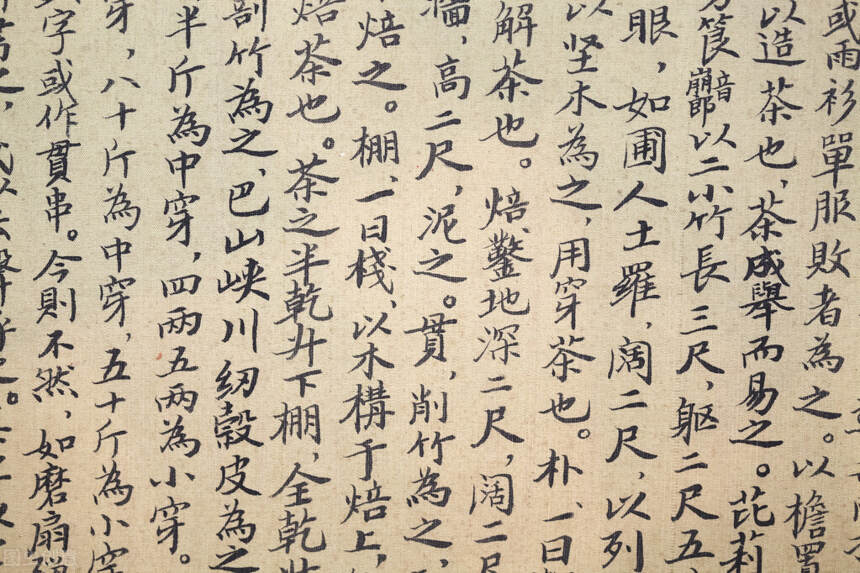 或雨衫單服敗者為之。以檐置
以造茶也,茶成舉而易之。芘莉
筤音崩郎以二小竹長三尺,軀二尺五
眼,如圃人土羅,闊二尺,以列
以坚木為之,用穿茶也。朴、一曰
解茶也。焙、鑿地深二尺,阔二尺
墻,高二尺,泥之。貫,削竹為之,
焙之。棚、一曰棧、以木構于焙上,
焙茶也。茶之半乾升下棚,全乾
剖竹為之、巴山峽川紉榖皮為之
半斤為中穿,四兩五兩為小穿。
穿,八十斤為中穿,五十斤為小穿
字或作貫串。今則不然,如磨扇